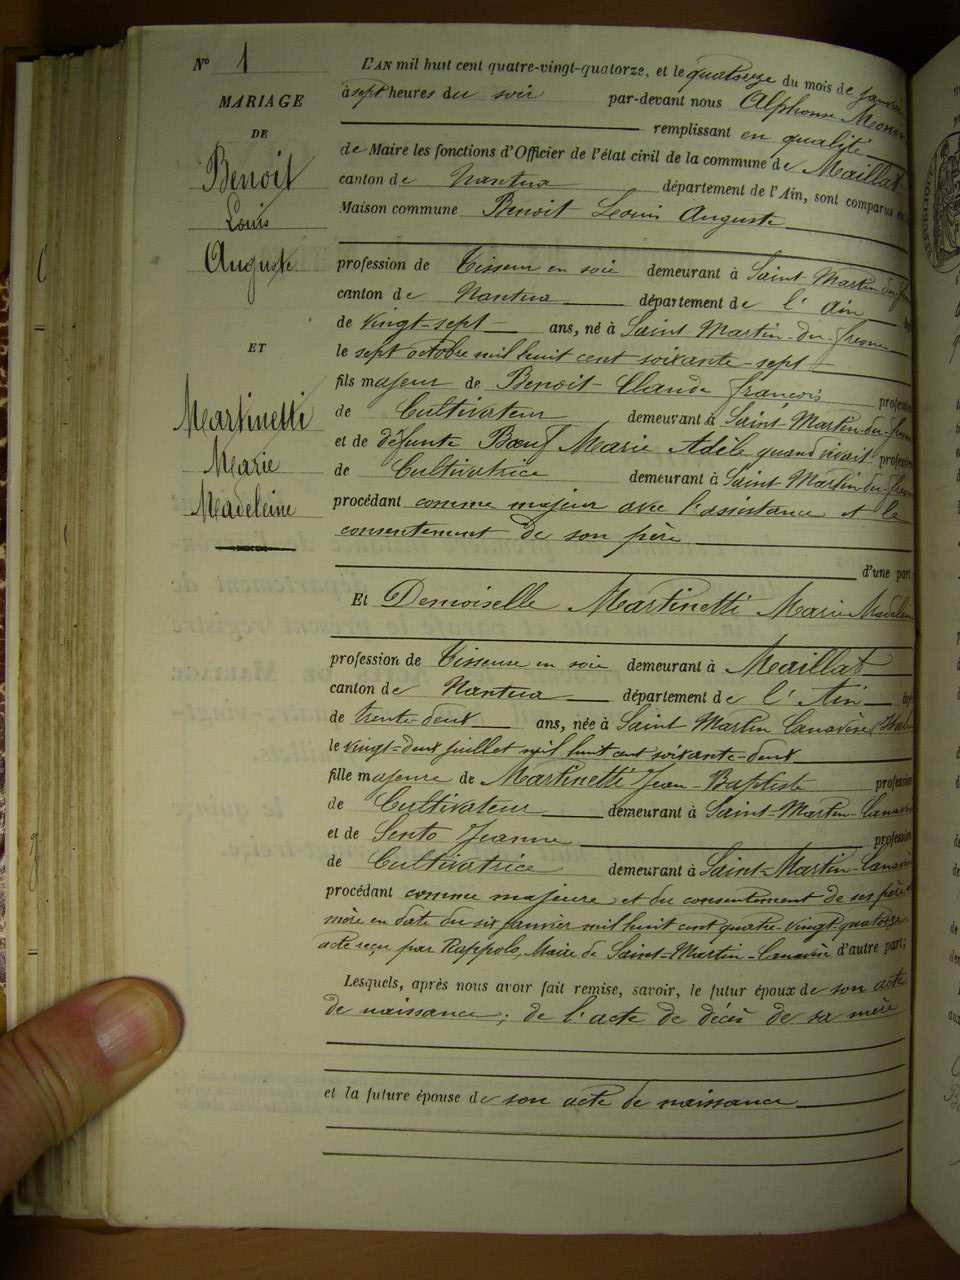 N° 1
MARIAGE
DE
Benoit
Louis
Auguste
ET
Martinetti
Marie
Madeleine
L'AN mil huit cent quatre-vingt-quatorze, et le quatorze du mois de janvier
à sept heures du soir par-devant nous Alphonse
remplissant en qualité
de Maire les fonctions d'Officier de l'état civil de la commune de Maillat
canton de Nantua département de l'Ain, sont comparus en
Maison commune Benoit Louis Auguste
profession de Tisseur en soie demeurant à Saint Martin du fresne
canton de Nantua département de l'Ain âgé
de vingt-sept ans, né à Saint Martin-du-fresne
le sept octobre mil huit cent soixante-sept
fils majeur de Benoit Claude françois profession
de Cultivateur demeurant à Saint Martin-du-fresne
et de défunte Bœuf Marie Adèle quand vivait profession
de Cultivatrice demeurant à Saint Martin du fresne
procédant comme majeur avec l'assistance et le
consentement de son père
d'une part
Et Demoiselle Martinetti Marie Madeleine
profession de Tisseuse en soie demeurant à Maillat
canton de Nantua département de l'Ain âgé
de trente-deux ans, née à Saint Martin Canavèse
le vingt-deux juillet mil huit cent soixante-deux
fille majeure de Martinetti Jean-Baptiste profession
de Cultivateur demeurant à Saint-Martin-Canavèse
et de Sento Jeanne profession
de Cultivatrice demeurant à Saint-Martin-Canavèse
procédant comme majeure et du consentement de ses père et
mère en date du six janvier mil huit cent quatre-vingt-quatorze
acte reçu par Rappolo, Maire de Saint-Martin-Canavèse d'autre part;
Lesquels, après nous avoir fait remise, savoir, le futur époux de son acte
de naissance; de l'acte de décès de sa mère
et la future épouse de son acte de naissance